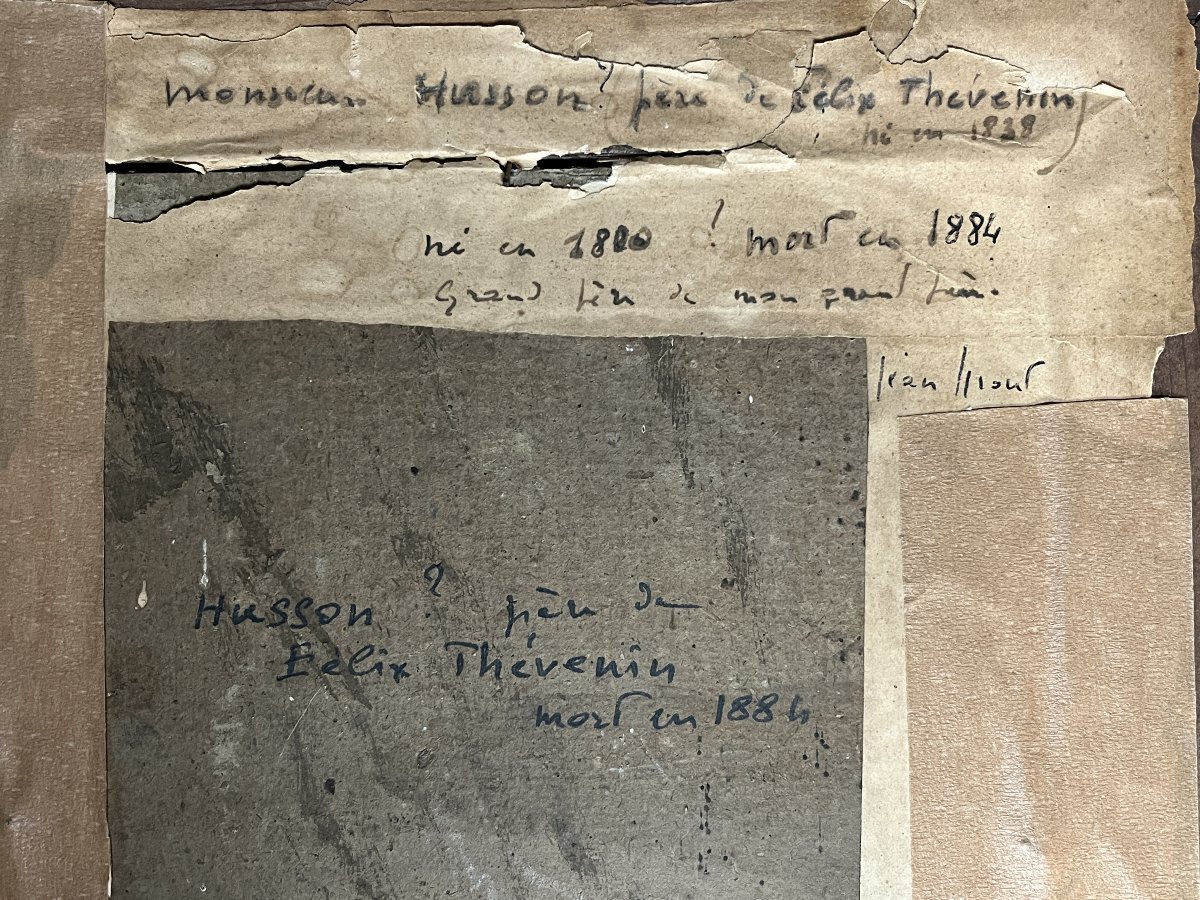 monsieur Husson ? père de Félix Thévenin
né en 1838
né en 1800 ? mort en 1884
Grand père de mon grand père.
Jean
Husson ? père de
Félix Thévenin
mort en 1884